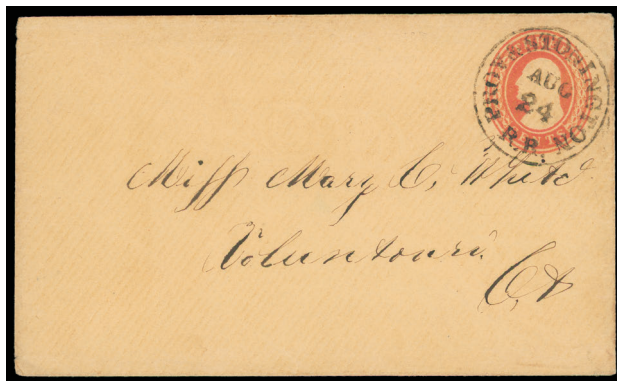 PROV & STONINGTON
AUG
24
R.R. NO.
Miss Mary C. White
Voluntown.
Ct